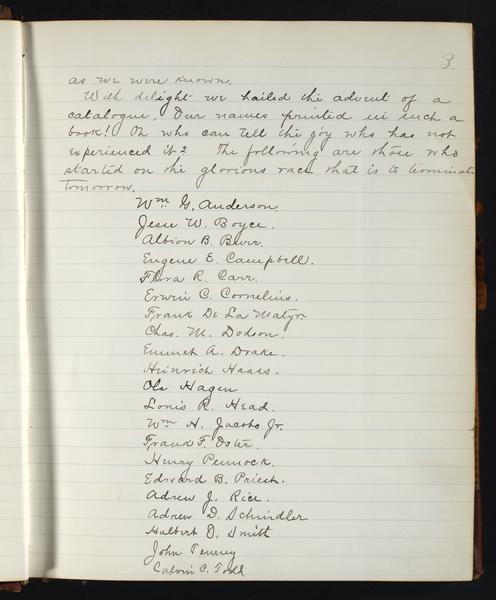 3.
as we were known.
With delight we hailed the advent of a
catalogue, Our names printed in such a
book! Oh who can tell the joy who has not
experienced it? The following are those who
started on the glorious race that is to terminate
tomorrow.
Wm. G. Anderson.
Jesse W. Boyce.
Albion B. Burr.
Eugene E. Campbell.
Flora R. Carr.
Erwin C. Cornelius.
Frank De La Matyr.
Chas. M. Dodson.
Emmet A. Drake.
Heinrich Haass.
Ole Hagen
Louis R. Head.
Wm H. Jacobs Jr.
Frank F. Oster.
Henry Pennock.
Edward B. Priest.
Adrew J. Rice.
Adrew D. Schindler
Hulbert D. Smith
John Tenney
Calvin C. Todd